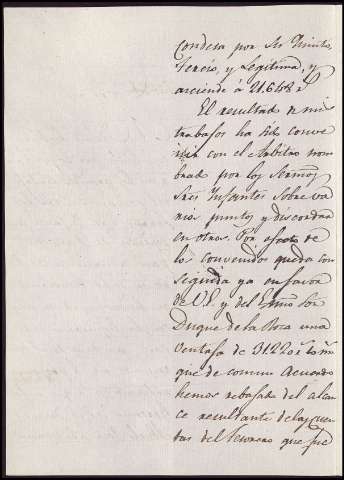 Condesa por su Quinto,
Tercio, y Legitima, y
asciende à 21.648 r.^s
El resultado de mis
trabajos ha sido conve
nir con el Arbitro nom
brado por los Sermos
Sres Infantes sobre va
rios puntos y discordar
en otros. Por efecto de
lo convenidos queda con
seguida ya en favor
de V.E. y del Exmo Sor
Duque de la Roca una
ventaja de 31220
que de comun Acuerdo
hemos rebajado del alcan
ce resultante de las cuen
tas del Tesorero que fué